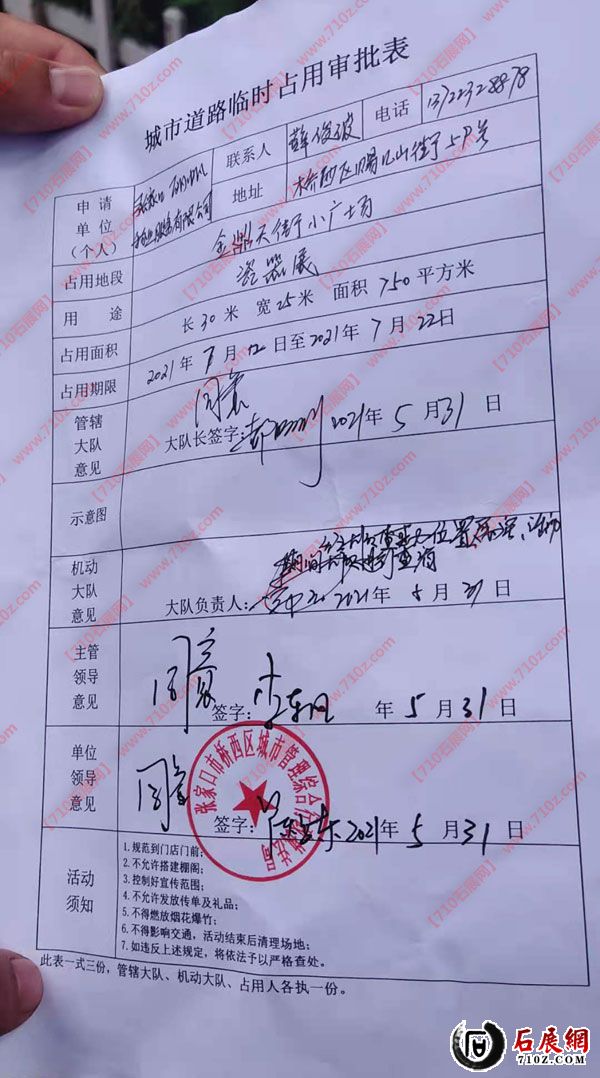 城市道路临时占用审批表
申请单位（个人）
联系人
薛俊波
电话
13722328878
地址
占用地段
金鼎天街小广场
用 途
瓷器展
占用面积
长30米 宽25米 面积750平方米
占用期限
2021年7月12日至2021年7月22日
管辖大队意见
同意
大队长签字: 2021年5月31日
示意图
机动大队意见
大队负责人: 2021年5月31日
主管领导意见
同意
签字: 年5月31日
单位领导意见
同意
签字: 2021年5月31日
张家口市桥西区城市管理综合行政执法局
活动须知
1.规范到门店门前;
2.不允许搭建棚阁;
3.控制好宣传范围;
4.不允许发放传单及礼品;
5.不得燃放烟花爆竹;
6.不得影响交通，活动结束后清理场地;
7.如违反上述规定，将依法予以严格查处。
此表一式三份，管辖大队、机动大队、占用人各执一份。
【710石展网】www.710z.com
石展網
710Z.COM